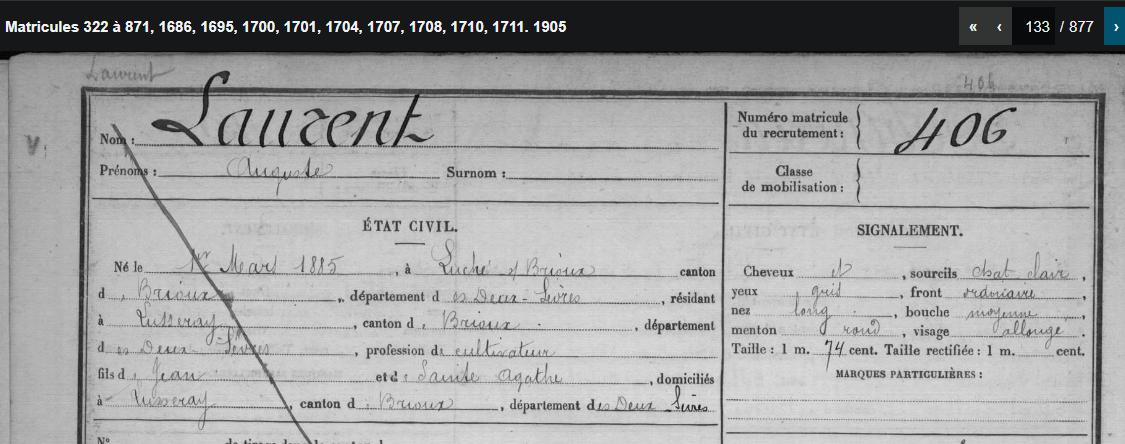 Matricules 322 à 871, 1686, 1695, 1700, 1701, 1704, 1707, 1708, 1710, 1711. 1905
« ‹ 133 / 877 ›
Laurent
406
Nom : Laurent
Prénoms : Auguste Surnom :
Numéro matricule
du recrutement : 406
Classe
de mobilisation :
ÉTAT CIVIL.
Né le 1er Mars 1885, à Luché s/ Brioux canton
d e Brioux, département d es Deux-Sèvres, résidant
à Lusseray, canton d e Brioux, département
d es Deux-Sèvres, profession de cultivateur
fils d e Jean et d e Sainte Agathe, domiciliés
à Lusseray, canton d e Brioux, département des Deux Sèvres
SIGNALEMENT.
Cheveux et, sourcils chat clair,
yeux gris, front ordinaire,
nez long, bouche moyenne,
menton rond, visage allongé
Taille : 1 m. 74 cent. Taille rectifiée : 1 m. cent.
MARQUES PARTICULIÈRES :